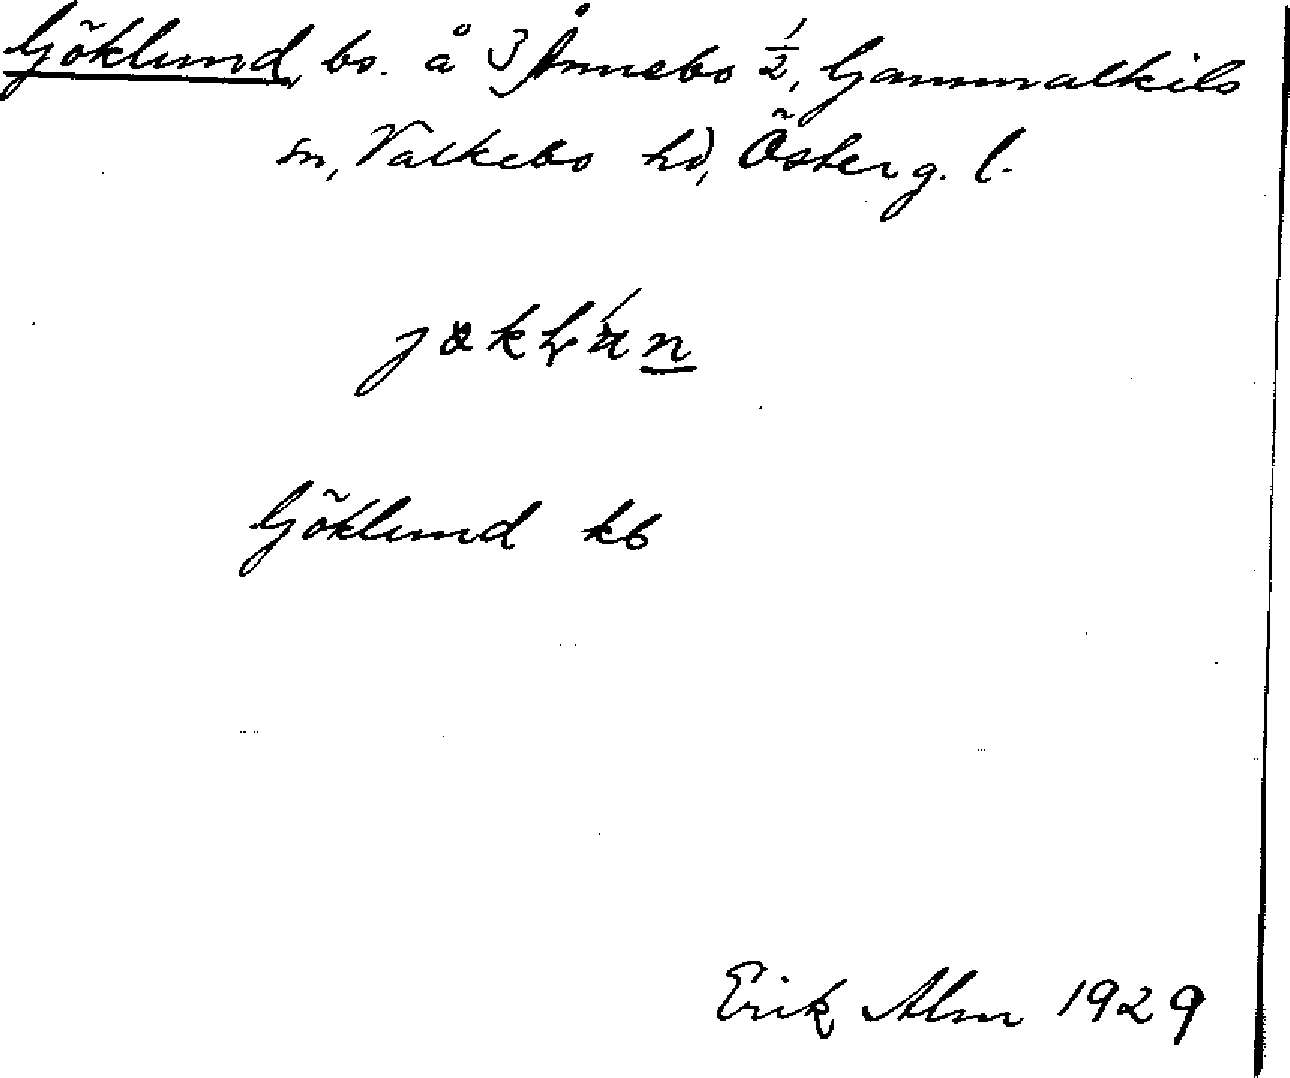 Göklund, bo. å Ånnebo 1/2, Gammalkils
sn, Valkebo hd, Österg. l.
Göklund kb
Erik Alm 1929